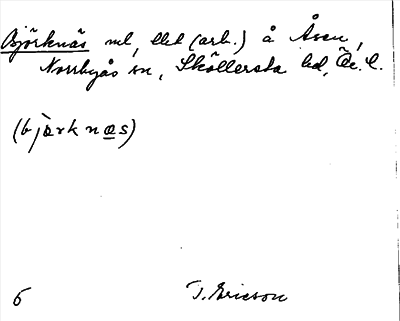 Björknäs ml, llet (arb.) å Åsen,
Norrbyås sn, Sköllersta hd, Öe. l.
(bjàrknas)
6 T. Ericson